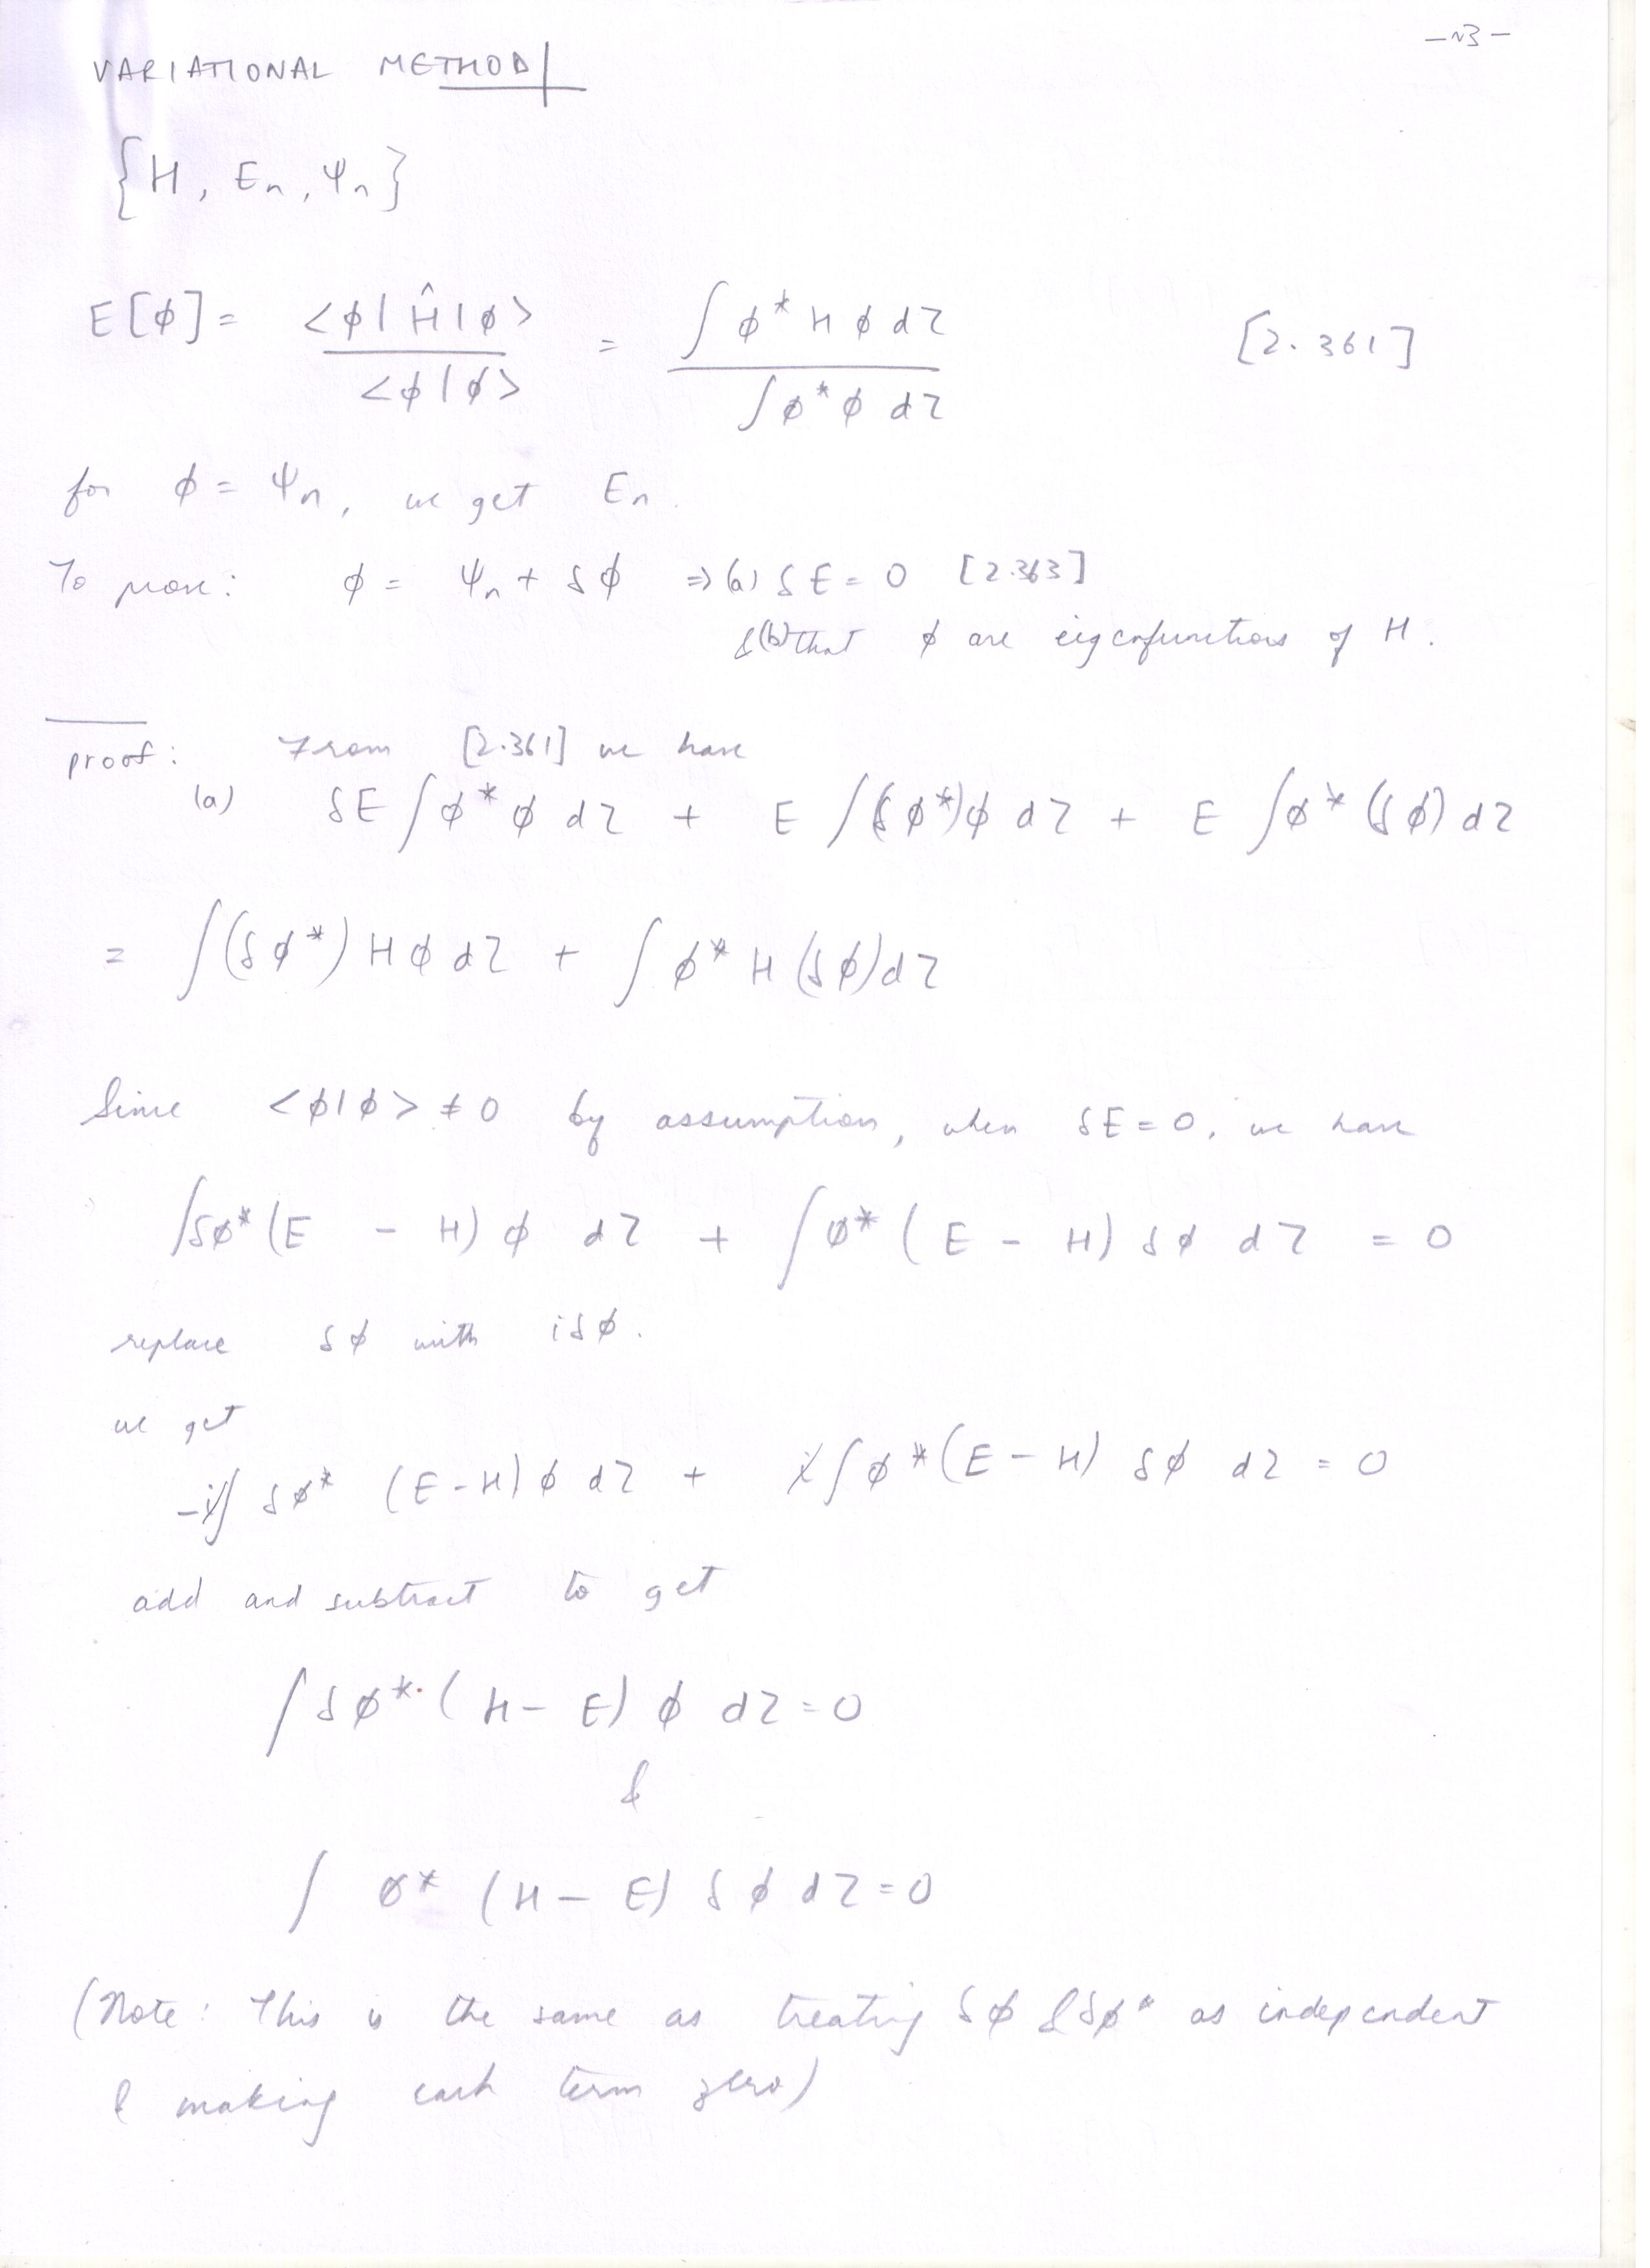 -N3-
VARIATIONAL METHOD
{H, Eₙ, ψₙ}
E[ϕ] = <ϕ|Ĥ|ϕ> / <ϕ|ϕ> = ∫ϕ* H ϕ dτ / ∫ϕ*ϕ dτ [2.361]
for ϕ = ψₙ, we get Eₙ.
To prove: ϕ = ψₙ + δϕ ⇒ (a) δE = 0 [2.363]
&(b) that ϕ are eigenfunctions of H.
proof: From [2.361] we have
(a) δE ∫ϕ*ϕ dτ + E ∫(δϕ*)ϕ dτ + E ∫ϕ*(δϕ) dτ
= ∫(δϕ*) H ϕ dτ + ∫ϕ* H (δϕ) dτ
Since <ϕ|ϕ> ≠ 0 by assumption, when δE = 0, we have
∫δϕ* (E - H) ϕ dτ + ∫ϕ* (E - H) δϕ dτ = 0
replace δϕ with iδϕ.
we get
-i∫δϕ* (E-H) ϕ dτ + i∫ϕ* (E-H) δϕ dτ = 0
add and subtract to get
∫δϕ* (H-E) ϕ dτ = 0
&
∫ϕ* (H-E) δϕ dτ = 0
(Note: This is the same as treating δϕ & δϕ* as independent
& making each term zero)